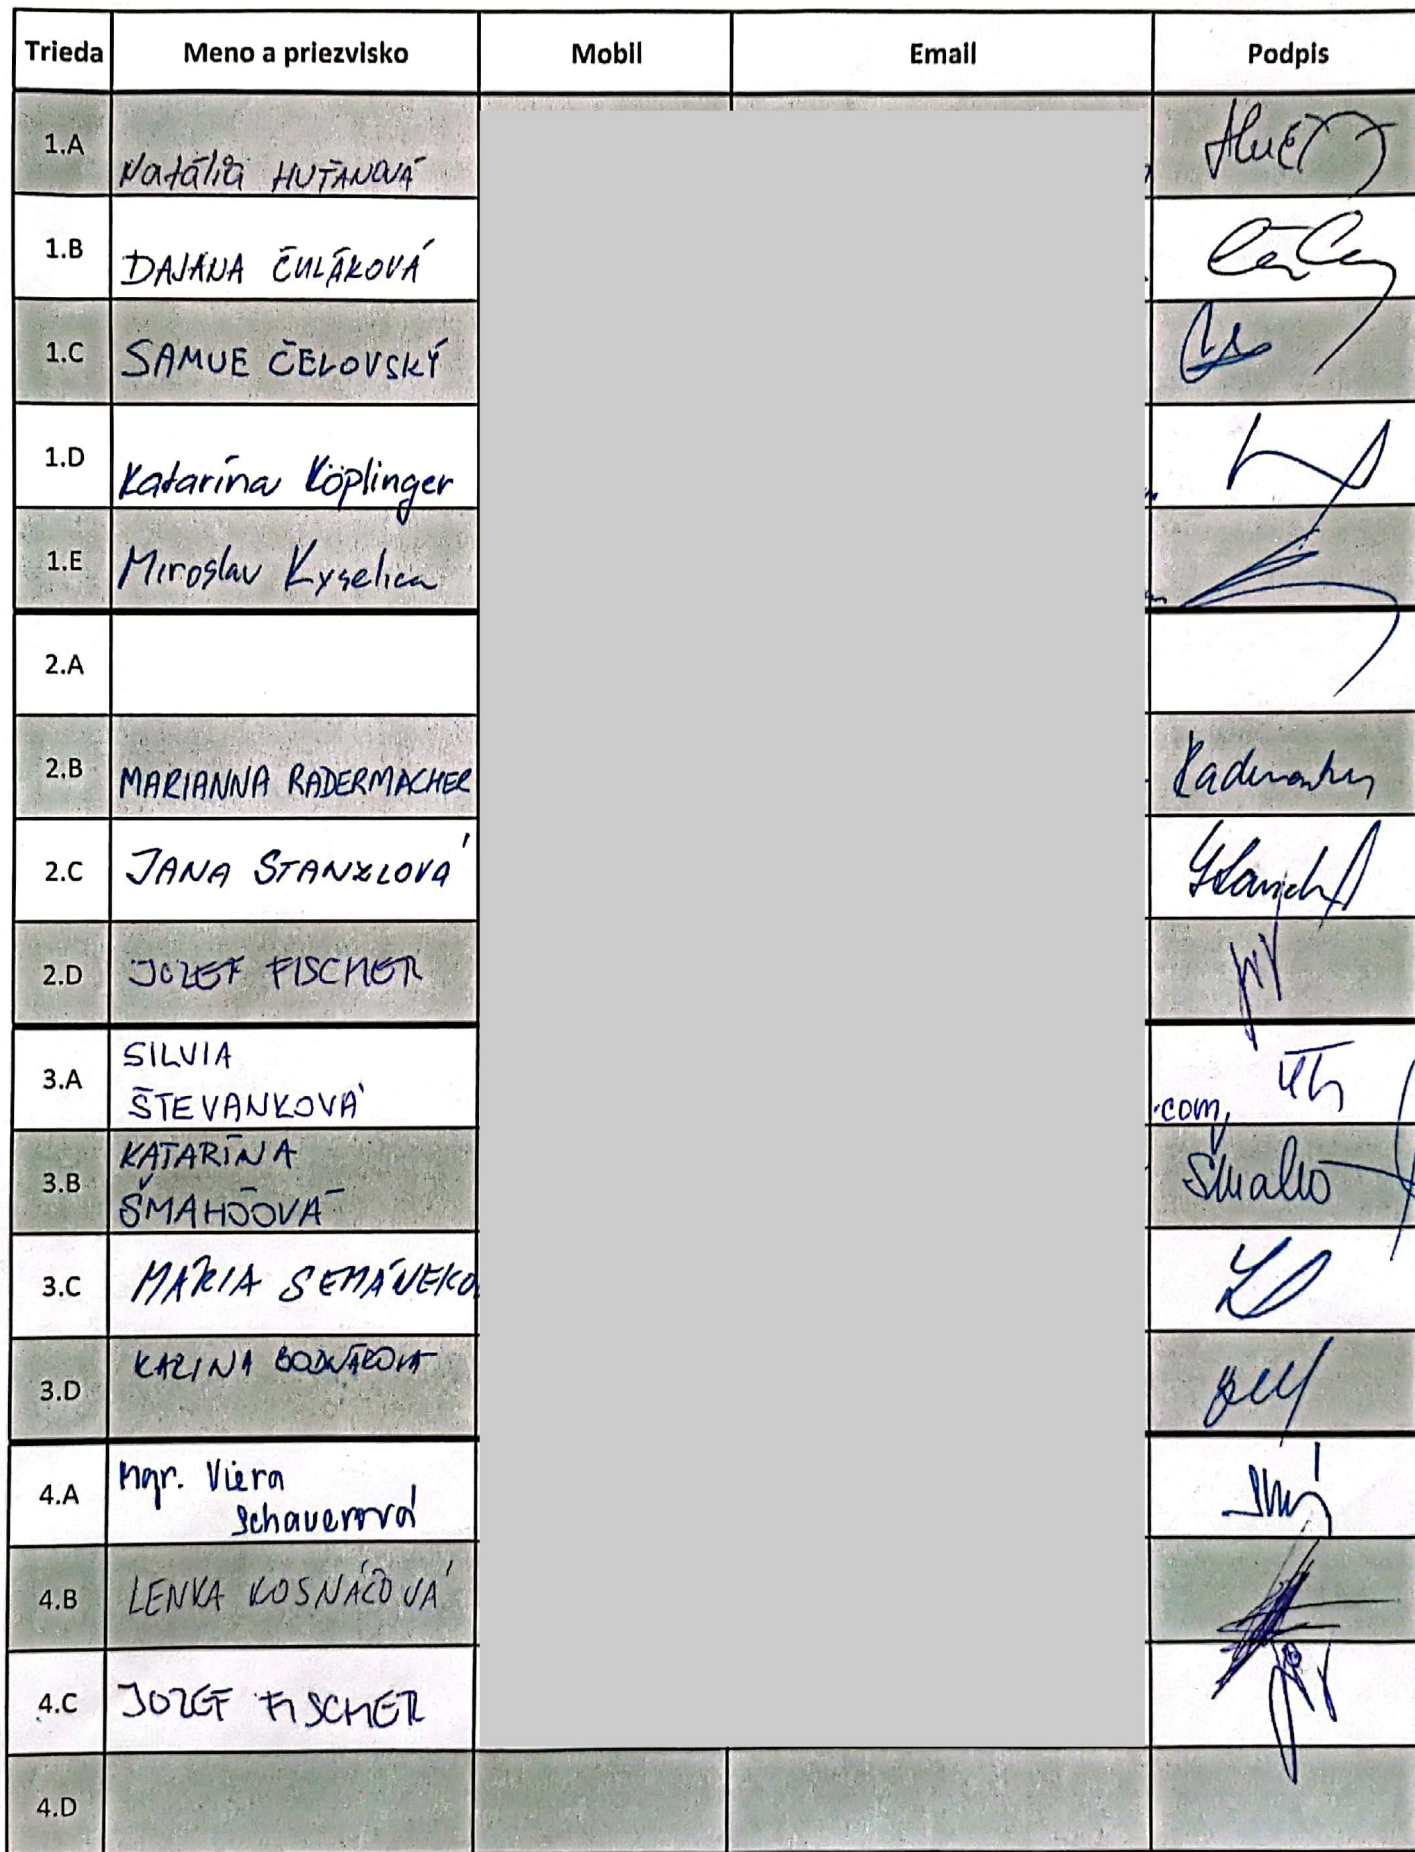 Trieda Meno a priezvisko Mobil Email Podpis
1.A Natália HUŤANOVÁ
1.B DAJANA ČULÁKOVÁ
1.C SAMUE ČELOVSKÝ
1.D Katarína Köplinger
1.E Miroslav Kyselica
2.A
2.B MARIANNA RADERMACHER
2.C JANA STANZLOVÁ
2.D JOZEF FISCHER
3.A SILVIA
ŠTEVANKOVÁ
.com
3.B KATARÍNA
3.C MÁRIA SEMÁNEKO
3.D KARINA BODNÁROVÁ
4.A Mgr. Viera
Schauerová
4.B LENKA KOSNÁČOVÁ
4.C JOZEF FISCHER
4.D